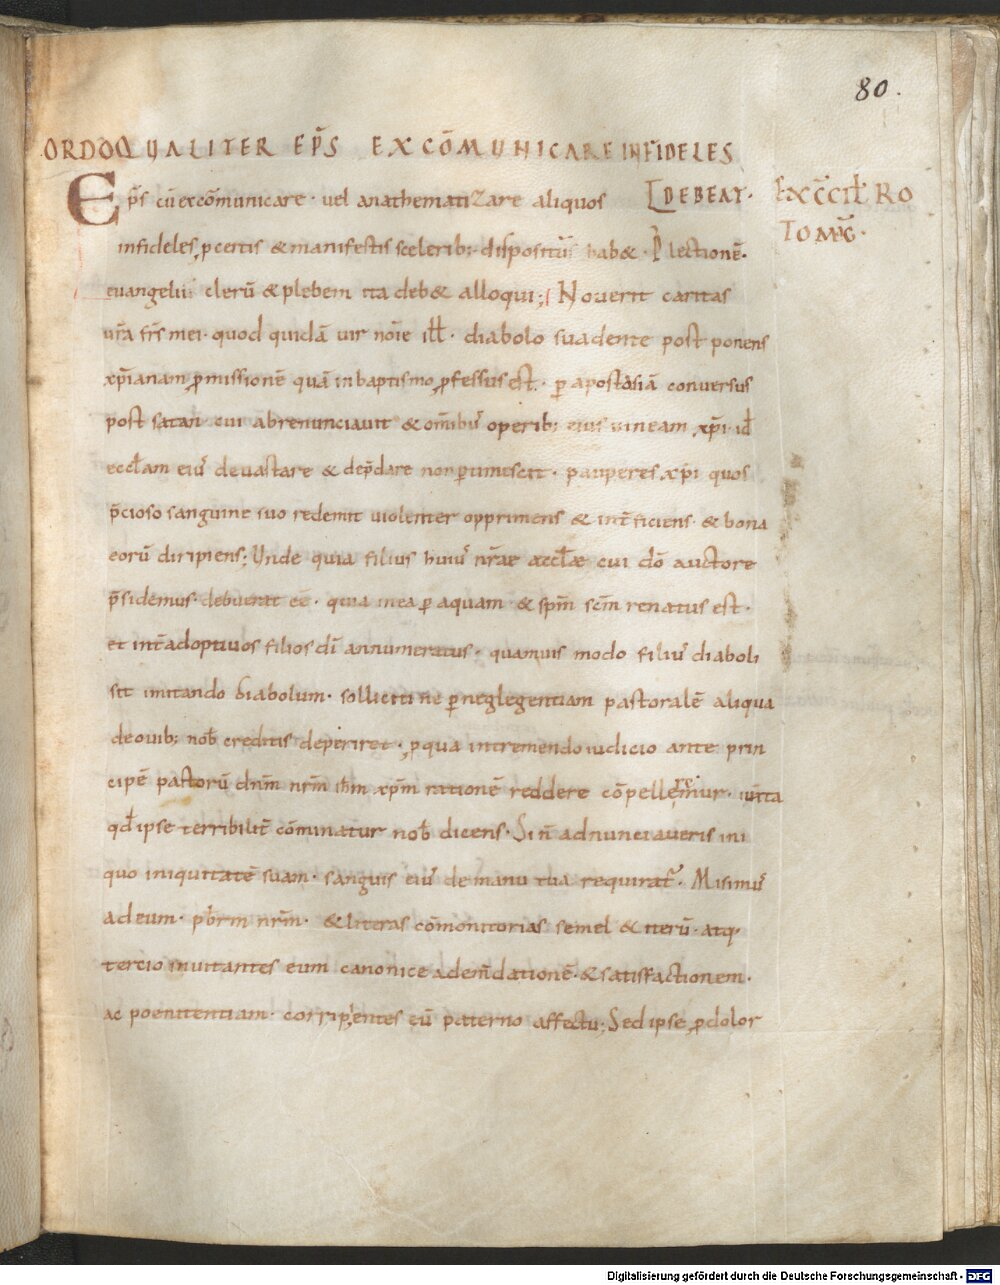 80.
ORDO QUALITER EPS̄ EXCŌMUNICARE INFIDELES
[DEBEAT.
EXC̄CIŁ RO
TOMḠ.
Ep̄s cū excōmunicare · uel anathematizare aliquos
infideles, ꝓ certis & manifestis sceleribꝫ dispositū habꝫ · P̄ lectionē
euangelii clerū & plebem ita debꝫ alloqui; Nouerit caritas
ur̄a fr̄s mei · quod quidā uir noīe iłł · diabolo suadente post ponens
xp̄ianam ꝓmissionē quā in baptismo ꝓfessus est · ꝑ apostasiā conuersus
post satan · cui abrenunciauit & om̄ibus operibꝫ eius uineam xp̄i · id̄
eccłam eiꝰ deuastare & dep̄dare non ꝑtimescit · pauperes xp̄i quos
p̄cioso sanguine suo redemit uiolenter opprimens & int̄ficiens · & bona
eorū diripiens; Unde quia filius huiꝰ nr̄ae aeccłae cui dō auctore
p̄sidemus · debuerat eē · quia in ea ꝑ aquam · & sp̄m sc̄m renatus est ·
et int̄ adoptiuos filios dī annumeratus · quamuis modo filiꝰ diaboli
sit imitando diabolum · solliciti ne ꝑ neglegentiam pastoralē aliqua
de ouibꝫ nob̄ creditis deperiret · ꝓ qua in tremendo iudicio ante prin
cipē pastorū dn̄m nr̄m ih̄m xp̄m rationē reddere cōpellemur · iuxta
qd̄ ipse terribilit̄ cōminatur nob̄ dicens · Si n̄ adnunciaueris ini
quo iniquitatē suam · sanguis eiꝰ de manu tua requirat̄ · Misimꝰ
ad eum · pb̄rm nr̄m · & literas cōmonitorias semel & iterū · atqꝫ
tercio inuitantes eum canonice ad em̄dationē · & satisfactionem ·
ac poenitentiam · corripientes eū paterno affectu; Sed ipse ꝓ dolor
Digitalisierung gefördert durch die Deutsche Forschungsgemeinschaft - DFG